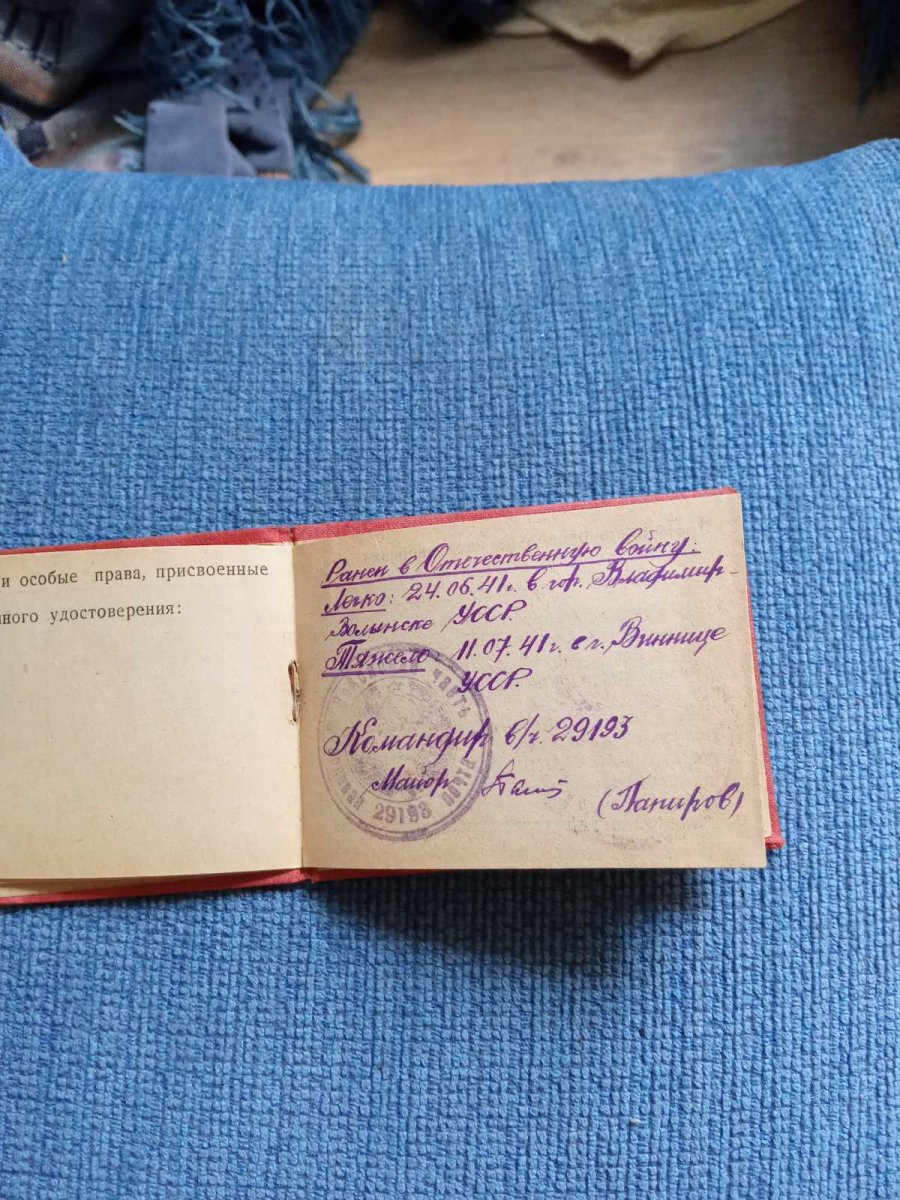 и особые права, присвоенные
ного удостоверения:
Ранен в Отечественную войну:
Легко: 24.06.41г. в гор. Владимир-
Волынске УССР.
Тяжело 11.07.41г. в г. Виннице
УССР.
Командир в/ч. 29193
Майор
(Папиров)
часть
29193